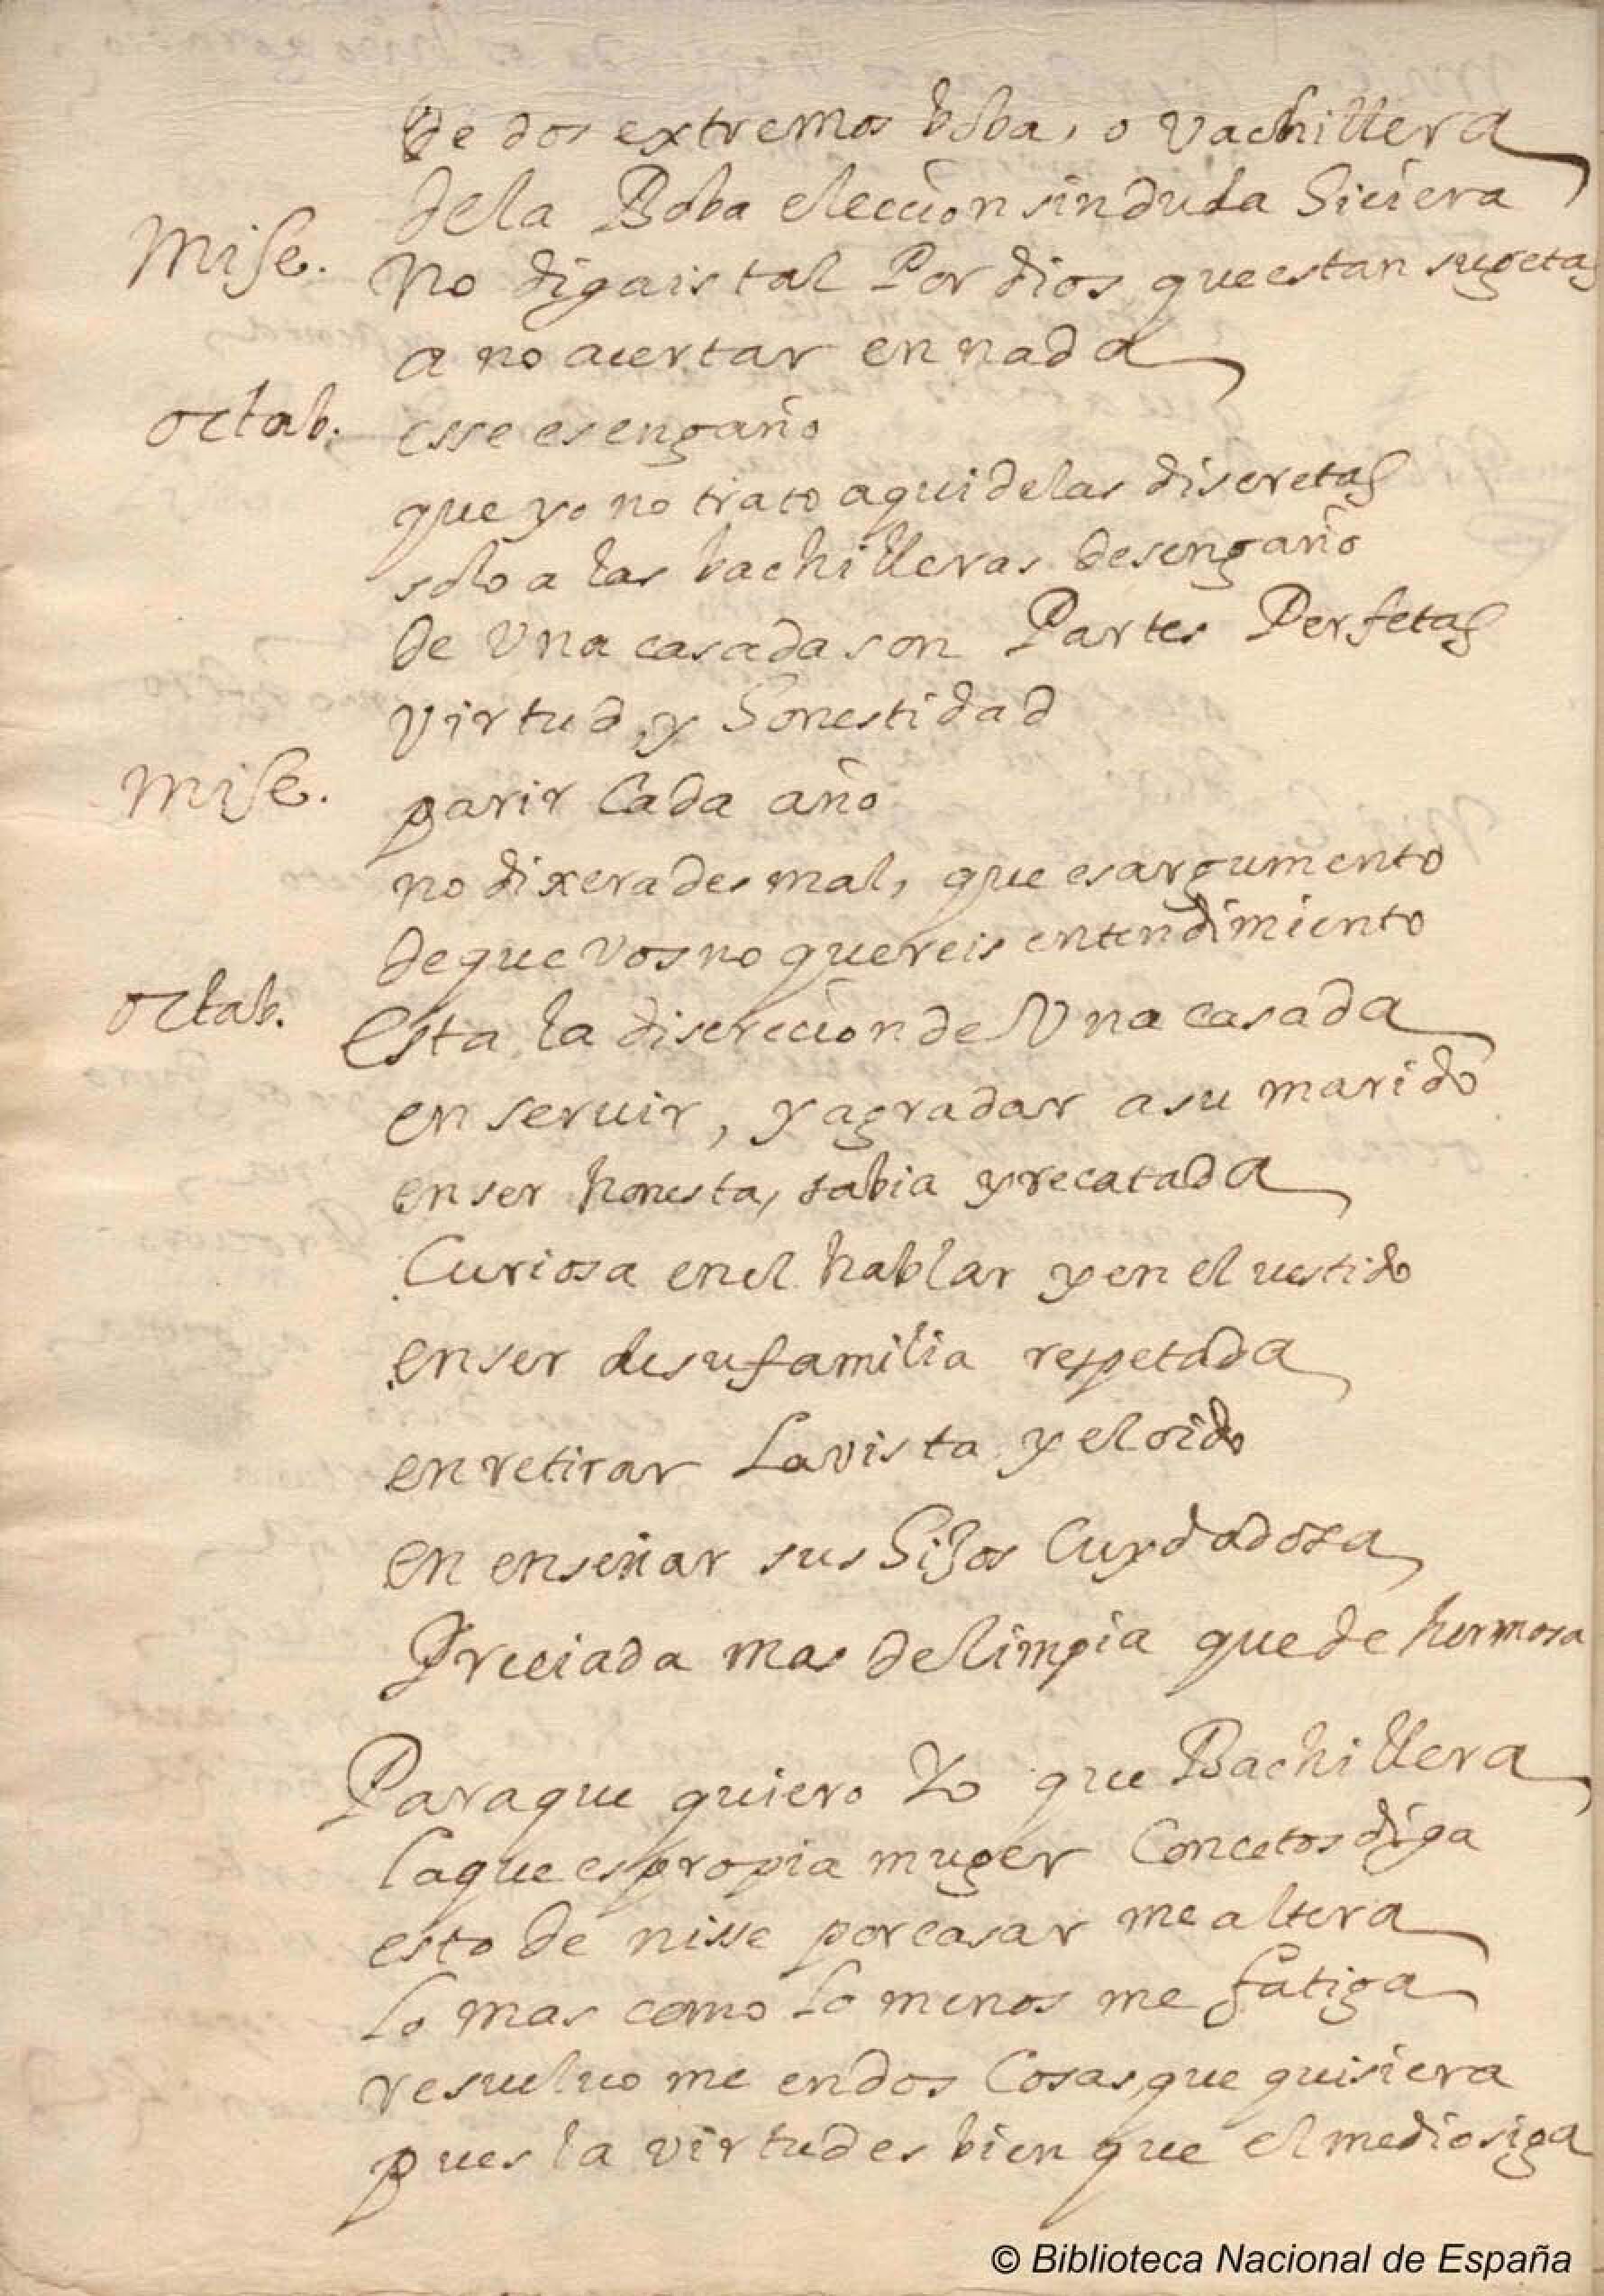 de dos extremos boba, o vachillera
dela Boba eleccion sinduda hiciera
Mise. No digais tal Por dios que estan sugetas
a no acertar en nada
octab. esse es engaño
que yo no trato aqui delas discretas
solo a las bachilleras desengaño
de Una casada son Partes Perfetas
virtud y honestidad
Mise. parir Cada año
no dixerades mal, que es argumento
de que vos no quereis entendimiento
octab. Esta la discrecion de Una casada
en seruir, y agradar a su marido
en ser honesta, sabia y recatada
Curiosa en el hablar y en el uestido
en ser de su familia respetada
en retirar La vista y el oido
en enseñar sus hijos Cuydadosa
Preciada mas de limpia que de hermosa
Para que quiero Yo que Bachillera
la que es propia muger Concetos diga
esto de nisse por casar me altera
Lo mas como Lo menos me fatiga
resueluo me en dos Cosas que quisiera
pues la virtud es bien que el medio siga
© Biblioteca Nacional de España